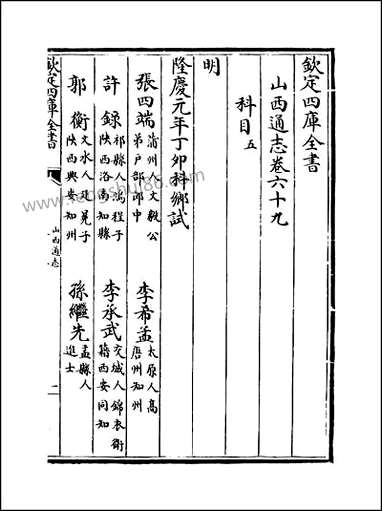 欽定四庫全書
山西通志卷六十九
科目五
明
隆慶元年丁卯科鄉試
張四端蒲州人文毅公弟戶部郎中
李希孟太原人高唐州知州
許錄祁縣人鴻程子陝西洛南知縣
李承武交城人錦衣衛籍西安同知
郭衡文水人子陝西興安知州
孫繼先盂縣人進士
欽定四庫全書
山西通志